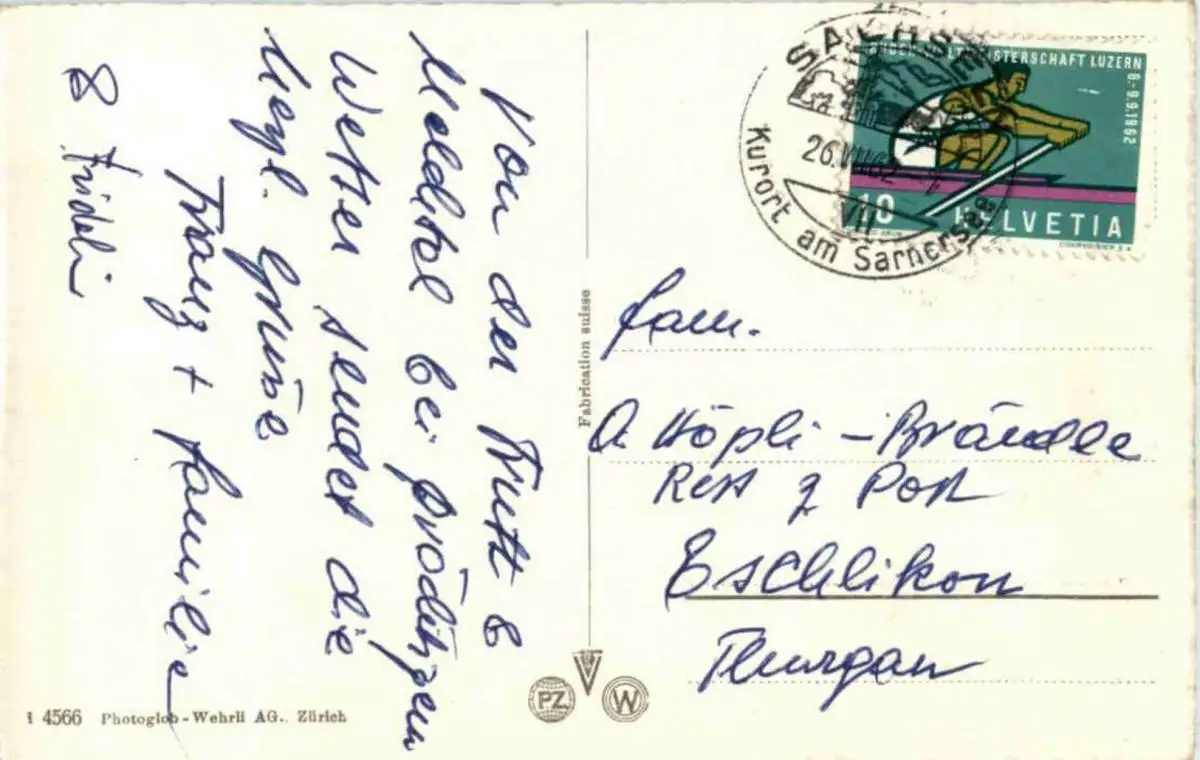 Von der Frutt &
Melchtal bei prächtigem
Wetter sendet die
herzl. Grüsse
Franz + Familie
& Frideli
SACHSELN
26.VII.62
VII
Kurort am Sarnersee
MEISTERSCHAFT LUZERN
6.-9.9.1962
10 HELVETIA
COURVOISIER S.A.
Fam.
A Höpli - Brändle
Rest z Post
Eschlikon
Thurgau
Fabrication suisse
PZ W
4566 Photoglob-Wehrli AG., Zürich